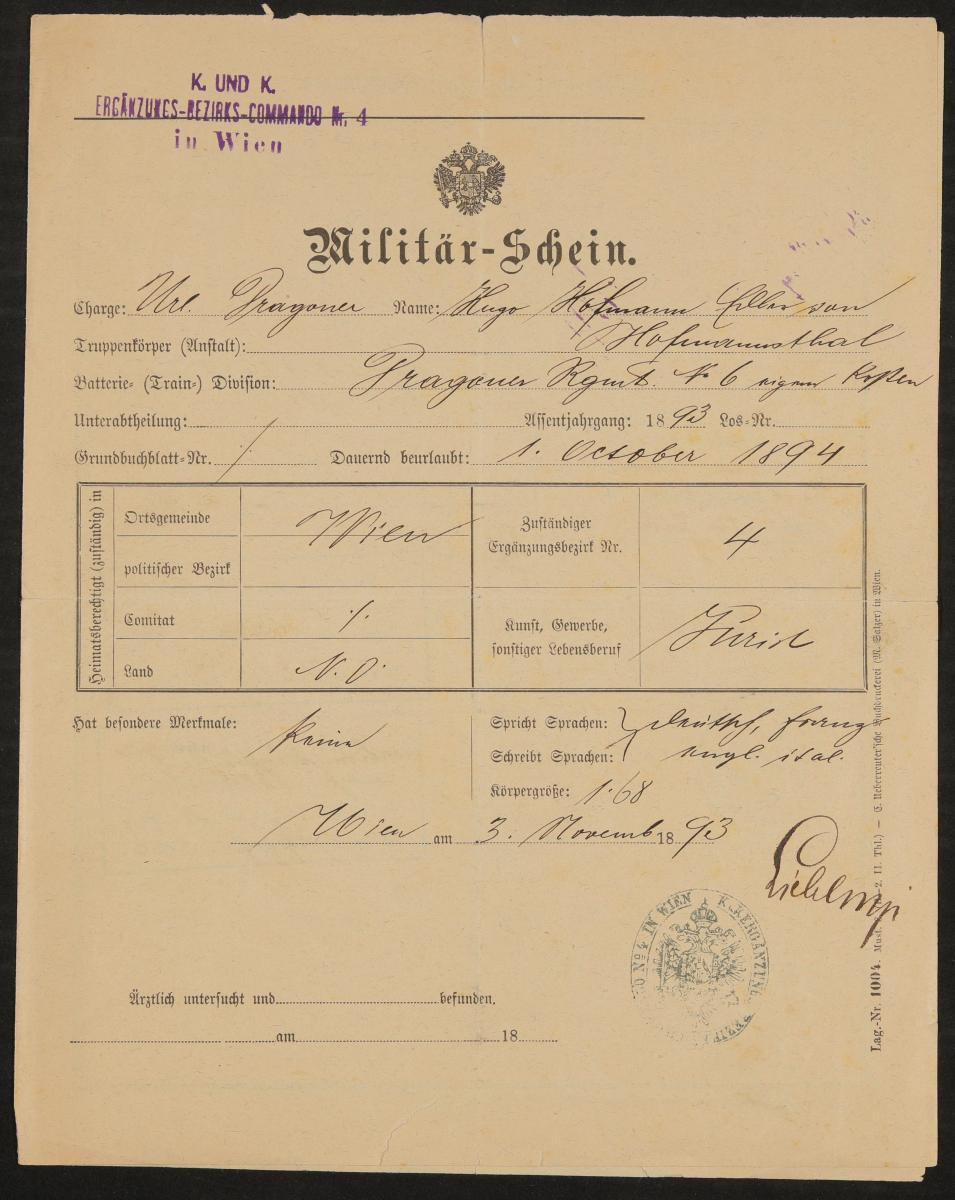 K. UND K.
ERGÄNZUNGS-BEZIRKS-COMMANDO Nr. 4
in Wien
Militär-Schein.
Charge: Url. Dragoner Name: Hugo Hofmann Edler von
Truppenkörper (Anstalt): Hofmannsthal
Batterie- (Train-) Division: Dragoner Rgmt. No 6 eigene Kosten
Unterabtheilung: Assentjahrgang: 1893 Los-Nr.
Grundbuchblatt-Nr. / Dauernd beurlaubt: 1. October 1894
Heimatsberechtigt (zuständig) in
Ortsgemeinde Wien
politischer Bezirk
Comitat /.
Land N. Ö.
Zuständiger Ergänzungsbezirk Nr. 4
Kunst, Gewerbe,
sonstiger Lebensberuf Jurist
Hat besondere Merkmale: keine
Spricht Sprachen: deutsch, franz.
Schreibt Sprachen: engl. ital.
Körpergröße: 1·68
Wien am 3. Novemb 1893
K. K. ERGÄNZUNGS BEZIRKS No 4 IN WIEN
Ärztlich untersucht und befunden.
am 18
Lag.-Nr. 1004. Must. 2. II. Thl.) — C. Ueberreuter'sche Buchdruckerei (M. Salzer) in Wien.